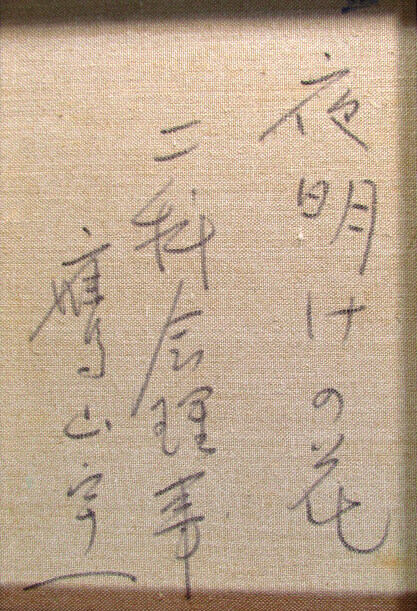 夜明けの花
二科会理事
鷹山宇一